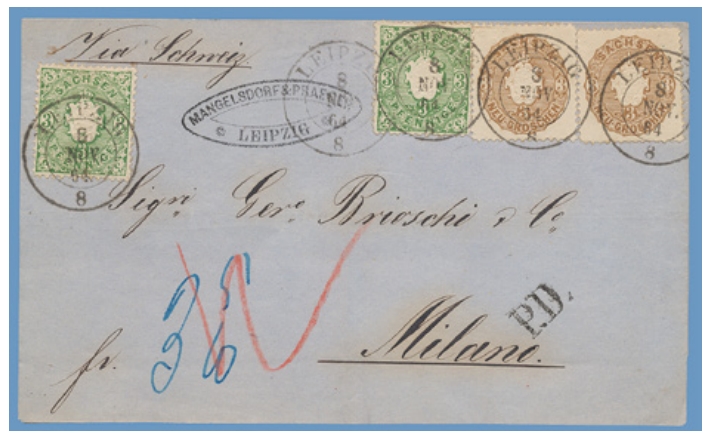 Via Schweiz
SACHSEN
3 3
PFENNIGE
LEIPZIG
8
NOV
64
8
MANGELSDORF & PRAE
LEIPZIG
LEIPZIG
8
NOV
64
8
SACHSEN
3 3
PFENNIGE
LEIPZIG
8
NOV
64
8
SACHSEN
3
NEU-GROSCHEN
LEIPZIG
8
NOV
64
8
SACHSEN
NEU-GROSCHEN
LEIPZ
8
NOV.
64
8
Sigri Gero Brioschi & Co
fr. 38
P.D.
Milano.